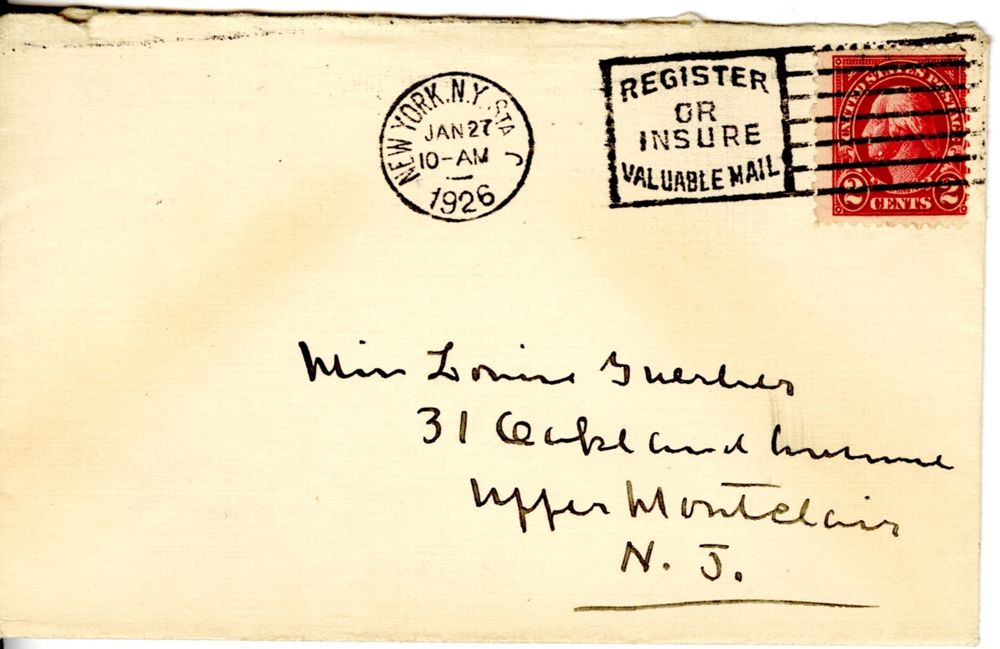 NEW YORK, N.Y. STA J
JAN 27
10-AM
1926
REGISTER
OR
INSURE
VALUABLE MAIL
UNITED STATES POSTAGE
2 CENTS 2
Miss Louise Guerber
31 Oakland Avenue
Upper Montclair
N. J.